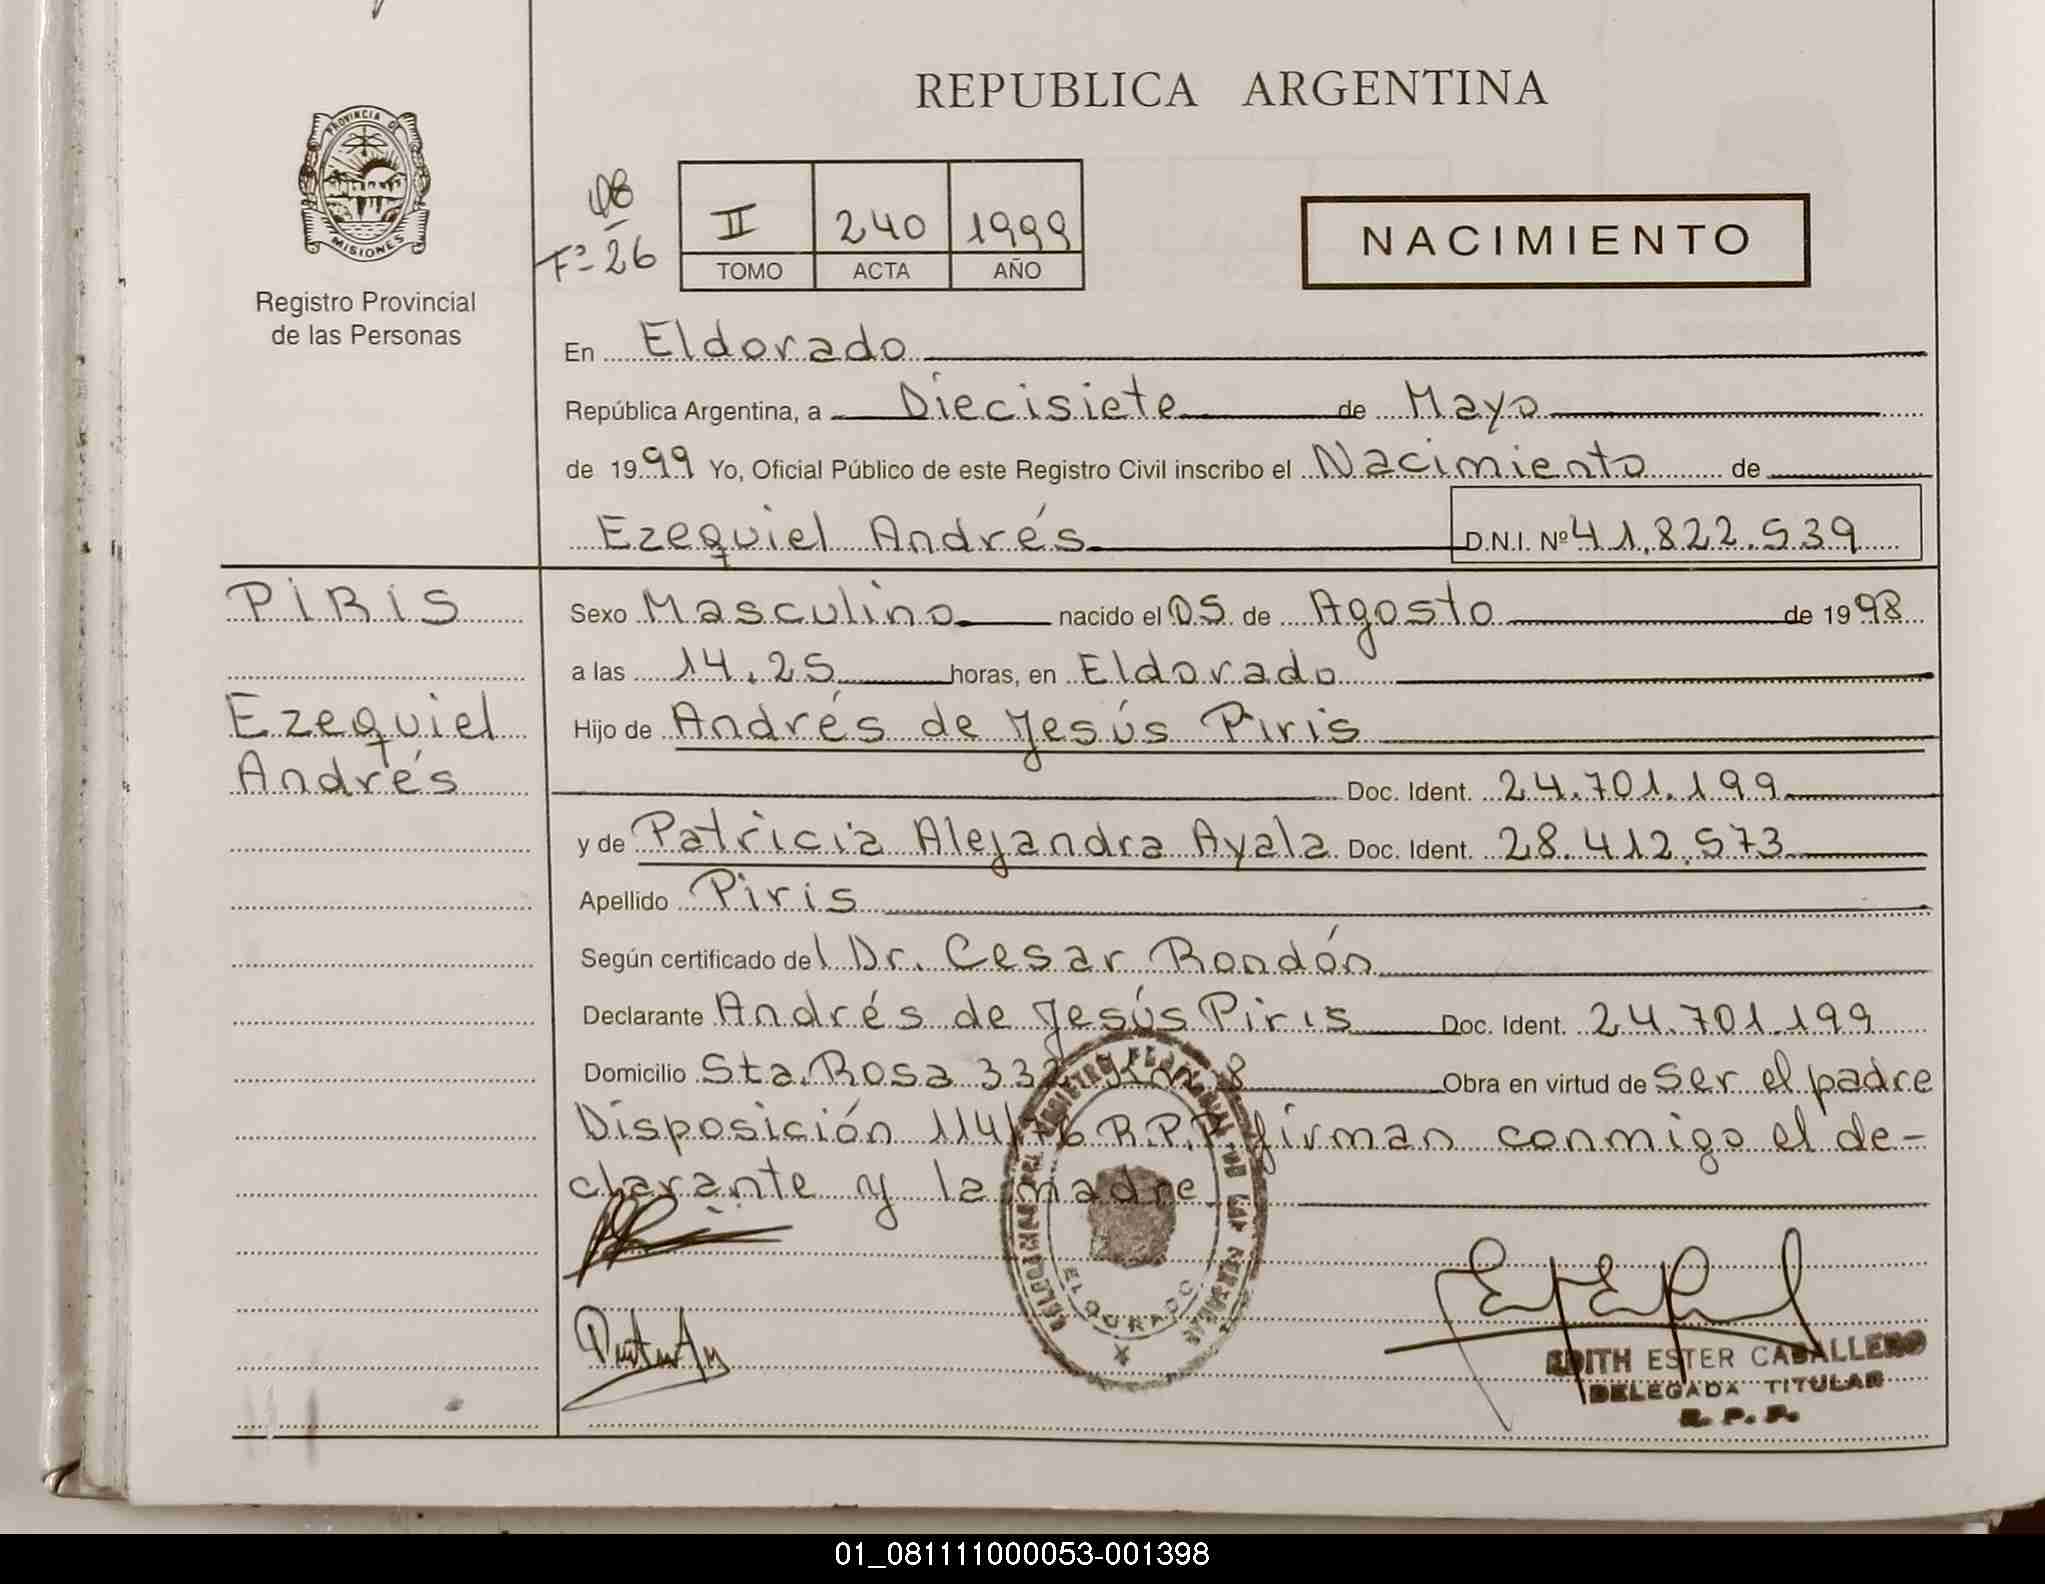 REPUBLICA ARGENTINA
PROVINCIA DE
MISIONES
Registro Provincial
de las Personas
08
Fº 26
II 240 1999
TOMO ACTA AÑO
NACIMIENTO
En Eldorado
República Argentina, a Diecisiete de Mayo
de 1999 Yo, Oficial Público de este Registro Civil inscribo el Nacimiento de
Ezequiel Andrés D.N.I. Nº 41.822.539
PIRIS
Ezequiel
Andrés
Sexo Masculino nacido el 05 de Agosto de 1998
a las 14.25 horas, en Eldorado
Hijo de Andrés de Jesús Piris
Doc. Ident. 24.701.199
y de Patricia Alejandra Ayala Doc. Ident. 28.412.573
Apellido Piris
Según certificado del Dr. Cesar Rondón
Declarante Andrés de Jesús Piris Doc. Ident. 24.701.199
Domicilio Sta. Rosa 332 Km 8 Obra en virtud de ser el padre
Disposición 114/76 R.P.P. firman conmigo el de-
clarante y la madre
ELDORADO
EDITH ESTER CABALLERO
DELEGADA TITULAR
R. P. P.
01_081111000053-001398